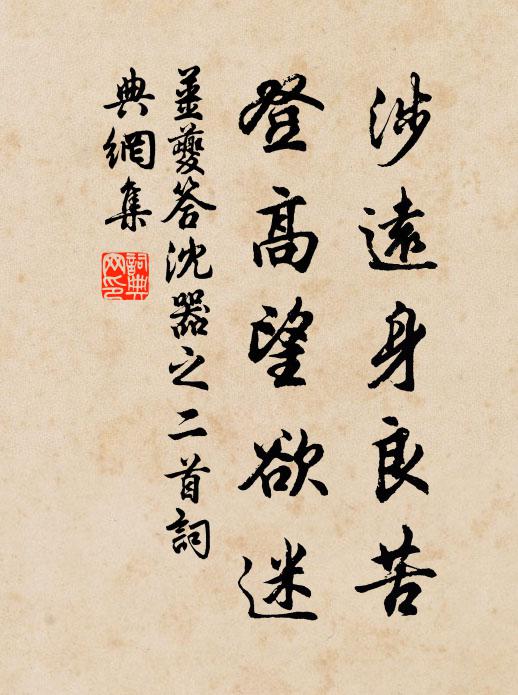 涉遠身良苦
登高望欲迷
姜夔答沈器之二首詞
典網集
詞典網印